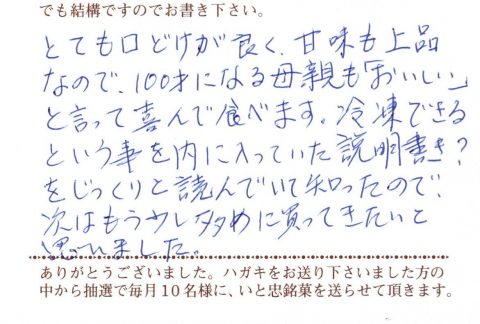 でも結構ですのでお書き下さい。
とても口どけが良く、甘味も上品
なので、100才になる母親も「おいしい」
と言って喜んで食べます。冷凍できる
という事を内に入っていた説明書き?
をじっくりと読んでいて知ったので、
次はもう少し多めに買ってきたいと
思いました。
ありがとうございました。ハガキをお送り下さいました方の
中から抽選で毎月10名様に、いと忠銘菓を送らせて頂きます。